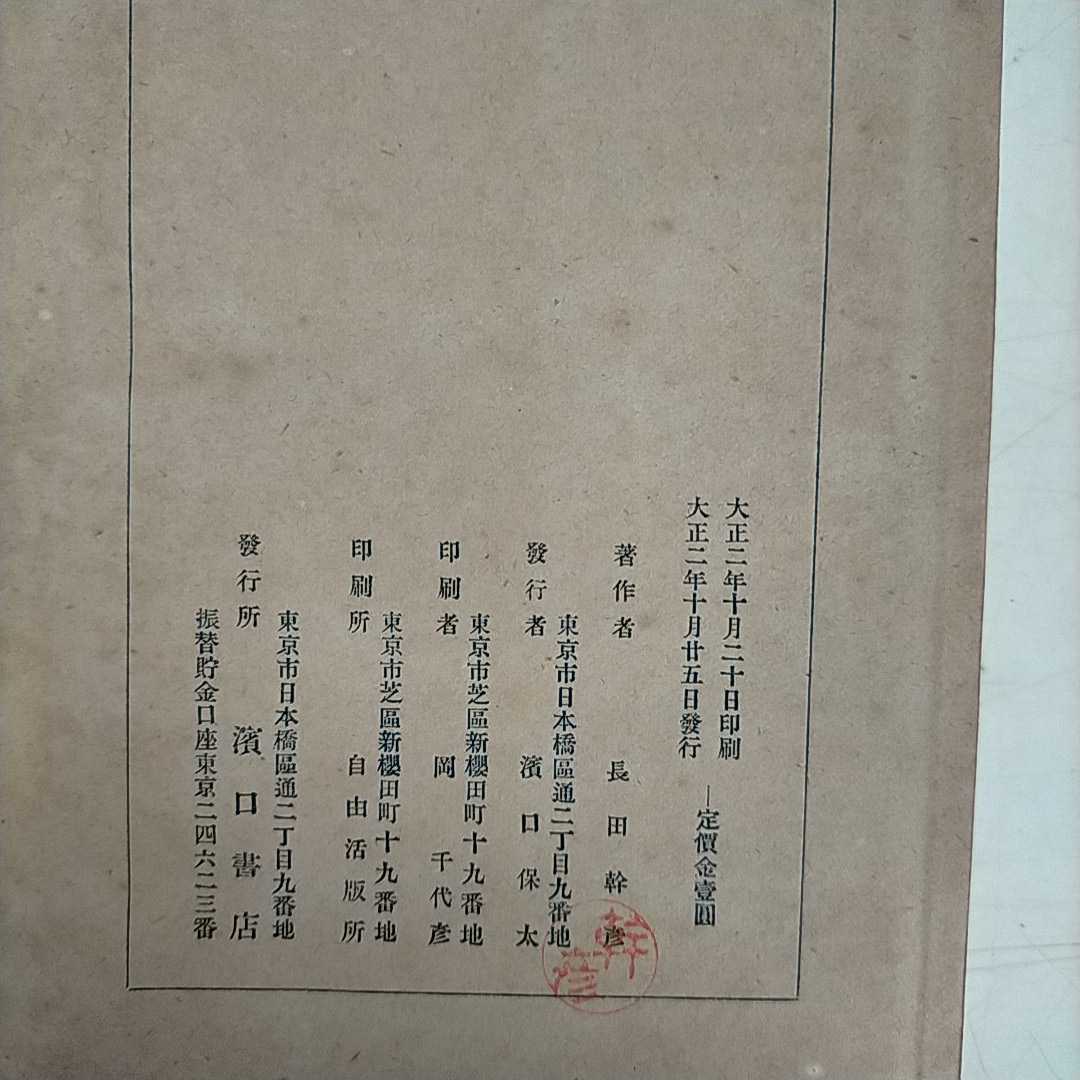 大正二年十月二十日印刷
大正二年十月廿五日發行
―定價金壹圓
著作者 長田幹彦
東京市日本橋區通二丁目九番地
發行者 濱口保太
東京市芝區新櫻田町十九番地
印刷者 岡千代彦
東京市芝區新櫻田町十九番地
印刷所 自由活版所
東京市日本橋區通二丁目九番地
發行所 濱口書店
振替貯金口座東京二四六二三番
幹彦